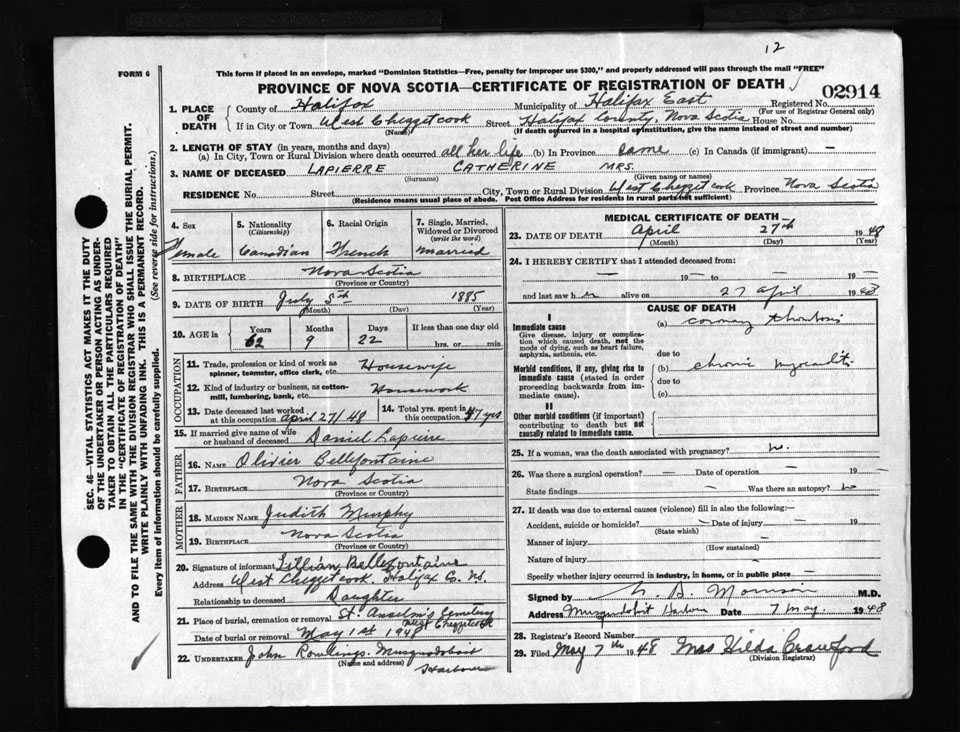 12
FORM 6
This form if placed in an envelope, marked "Dominion Statistics—Free, penalty for improper use $300," and properly addressed will pass through the mail "FREE"
PROVINCE OF NOVA SCOTIA—CERTIFICATE OF REGISTRATION OF DEATH
02914
1. PLACE OF DEATH
County of Halifax Municipality of Halifax East Registered No.
(For use of Registrar General only)
If in City or Town West Chezzetcook Street Halifax County, Nova Scotia House No.
(Name) (If death occurred in a hospital or institution, give the name instead of street and number)
2. LENGTH OF STAY (in years, months and days)
(a) In City, Town or Rural Division where death occurred all her life (b) In Province same (c) In Canada (if immigrant) —
3. NAME OF DECEASED LAPIERRE CATHERINE MRS.
(Surname) (Given name or names)
RESIDENCE No. Street City, Town or Rural Division West Chezzetcook Province Nova Scotia
(Residence means usual place of abode. Post Office Address for residents in rural parts not sufficient)
4. Sex
Female
5. Nationality
(Citizenship)
Canadian
6. Racial Origin
French
7. Single, Married, Widowed or Divorced
(write the word)
married
8. BIRTHPLACE Nova Scotia
(Province or Country)
9. DATE OF BIRTH July 5th 1885
(Month) (Day) (Year)
10. AGE in Years Months Days If less than one day old
62 9 22 hrs. or min.
OCCUPATION
11. Trade, profession or kind of work as spinner, teamster, office clerk, etc. Housewife
12. Kind of industry or business, as cotton-mill, lumbering, bank, etc. Housework
13. Date deceased last worked at this occupation April 27/48
14. Total yrs. spent in this occupation 47 yrs
15. If married give name of wife or husband of deceased Daniel Lapierre
FATHER
16. NAME Olivier Bellefontaine
17. BIRTHPLACE Nova Scotia
(Province or Country)
MOTHER
18. MAIDEN NAME Judith Murphy
19. BIRTHPLACE Nova Scotia
(Province or Country)
20. Signature of informant Lillian Bellefontaine
Address West Chezzetcook, Halifax Co. N.S.
Relationship to deceased Daughter
21. Place of burial, cremation or removal St. Anselm's Cemetery
West Chezzetcook
Date of burial or removal May 1st 1948
22. UNDERTAKER John Rowlings. Musquodoboit
(Name and address) Harbour
MEDICAL CERTIFICATE OF DEATH
23. DATE OF DEATH April 27th 1948
(Month) (Day) (Year)
24. I HEREBY CERTIFY that I attended deceased from:
— 19— to — 19—
and last saw her alive on 27 April 1948
CAUSE OF DEATH
I
Immediate cause
Give disease, injury or complication which caused death, not the mode of dying, such as heart failure, asphyxia, asthenia, etc.
(a) coronary thrombosis
due to
Morbid conditions, if any, giving rise to immediate cause (stated in order proceeding backwards from immediate cause).
(b) chronic myocarditis
due to
(c)
II
Other morbid conditions (if important) contributing to death but not causally related to immediate cause.
25. If a woman, was the death associated with pregnancy?
26. Was there a surgical operation? — Date of operation — 19 —
State findings — Was there an autopsy?
27. If death was due to external causes (violence) fill in also the following:—
Accident, suicide or homicide? — Date of injury — 19
(State which)
Manner of injury —
(How sustained)
Nature of injury —
Specify whether injury occurred in industry, in home, or in public place —
Signed by Morrison M.D.
Address Musquodoboit Harbour Date 7 May. 1948
28. Registrar's Record Number
29. Filed May 7th 1948 Mrs Hilda Crawford
(Division Registrar)
SEC. 46—VITAL STATISTICS ACT MAKES IT THE DUTY
OF THE UNDERTAKER OR PERSON ACTING AS UNDER-
TAKER TO OBTAIN ALL THE PARTICULARS REQUIRED
IN THE "CERTIFICATE OF REGISTRATION OF DEATH"
AND TO FILE THE SAME WITH THE DIVISION REGISTRAR WHO SHALL ISSUE THE BURIAL PERMIT.
WRITE PLAINLY WITH UNFADING INK. THIS IS A PERMANENT RECORD.
Every item of information should be carefully supplied. (See reverse side for instructions.)